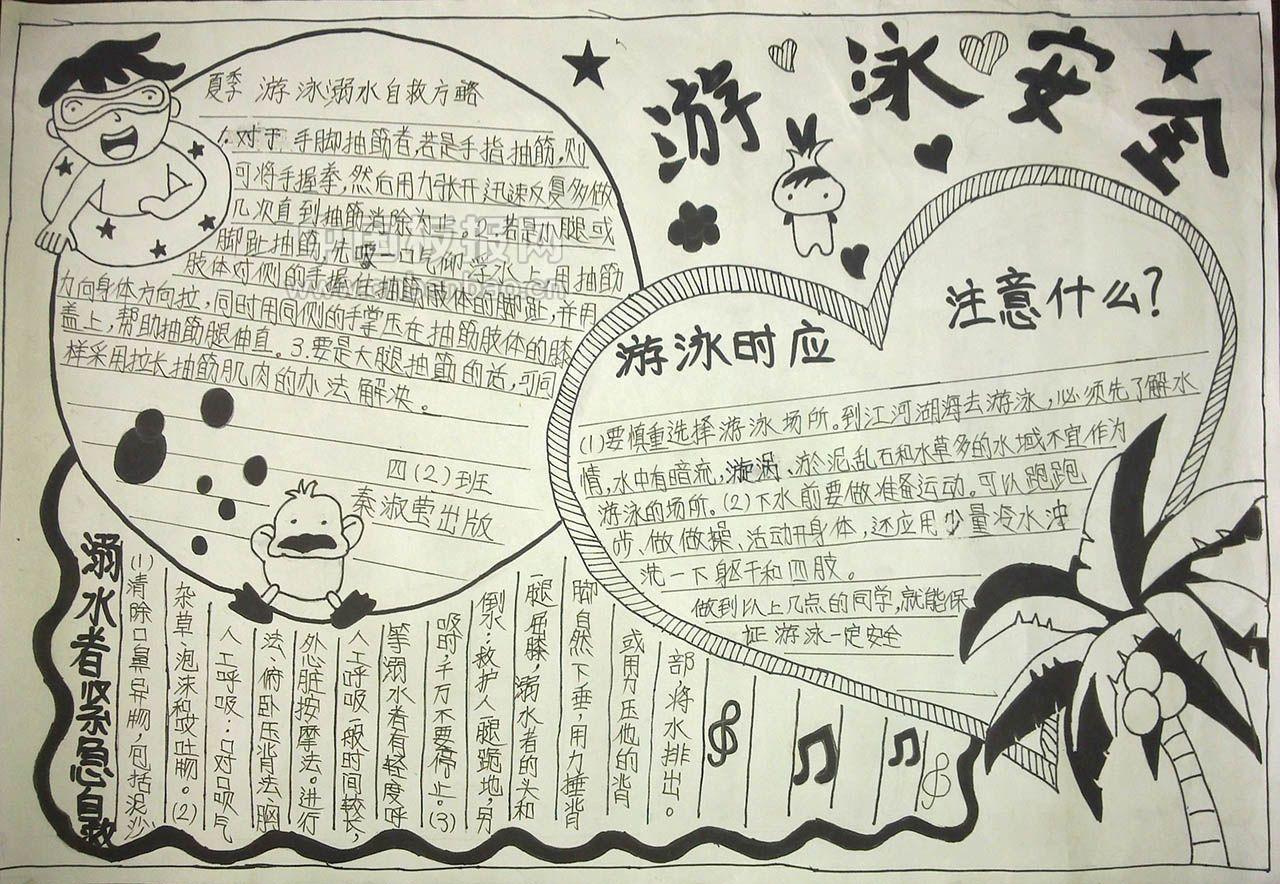 游泳安全
夏季 游泳溺水自救方略
1.对于手脚抽筋者,若是手指抽筋,则
可将手握拳,然后用力张开,迅速反复多做
几次直到抽筋消除为止。2.若是小腿或
脚趾抽筋,先吸一口气仰浮水上,用抽筋
肢体对侧的手握住抽筋肢体的脚趾,并用
力向身体方向拉,同时用同侧的手掌压在抽筋肢体的膝
盖上,帮助抽筋腿伸直。3.要是大腿抽筋的话,可同
样采用拉长抽筋肌肉的办法解决。
四(2)班
秦淑莹出版
游泳时应
注意什么?
(1)要慎重选择游泳场所。到江河湖海去游泳,必须先了解水
情,水中有暗流,漩涡、淤泥乱石和水草多的水域不宜作为
游泳的场所。(2)下水前要做准备运动。可以跑跑
步、做做操、活动开身体,还应用少量冷水冲
洗一下躯干和四肢。
做到以上几点的同学,就能保
证游泳一定安全
溺水者紧急自救
(1)清除口鼻异物,包括泥沙
杂草、泡沫和呕吐物。(2)
人工呼吸:口对口吹气
法、俯卧压背法、胸
外心脏按摩法。进行
人工呼吸一般时间较长,
等溺水者有轻度呼
吸时,千万不要停止。(3)
倒水:救护人腿跪地,另一
腿屈膝,溺水者的头和
脚自然下垂,用力捶背
或用力压他的背
部将水排出。